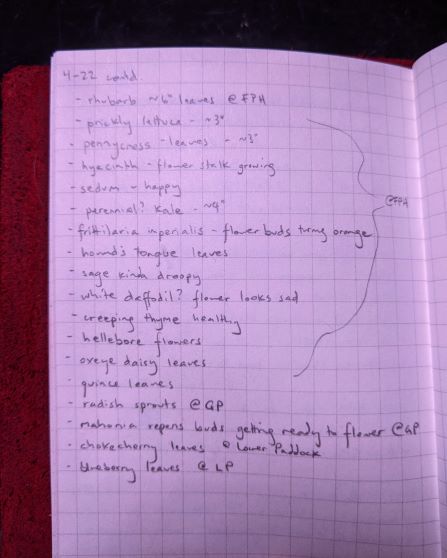 4-22 contd.
- rhubarb ~6" leaves @FPH
- prickly lettuce - ~3"
- pennycress - leaves - ~3"
- hyacinth - flower stalk growing
- sedum - happy
- perennial? kale - ~4"
@FPH
- frittilaria imperialis - flower buds turning orange
- hound's tongue leaves
- sage kinda droopy
- white daffodil? flower looks sad
- creeping thyme healthy
- hellebore flowers
- oxeye daisy leaves
- quince leaves
- radish sprouts @GP
- mahonia repens buds getting ready to flower @GP
- chokecherry leaves @ Lower Paddock
- blueberry leaves @ LP